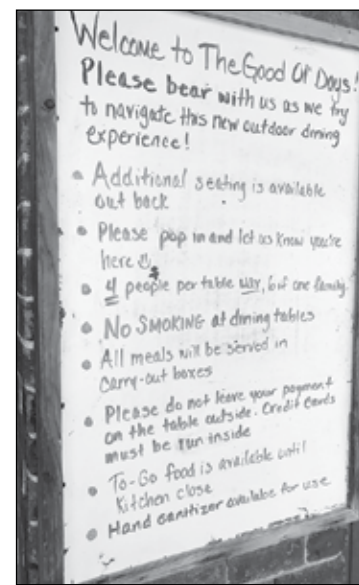 Welcome to The Good Ol' Days!
Please bear with us as we try
to navigate this new outdoor dining
experience!
• Additional seating is available
out back
• Please pop in and let us know you're
here
• 4 people per table, 6 if one family
• NO SMOKING at dining tables
• All meals will be served in
carry-out boxes
• Please do not leave your payment
on the table outside. Credit Cards
must be run inside
• To-Go food is available until
Kitchen close
• Hand sanitizer available for use